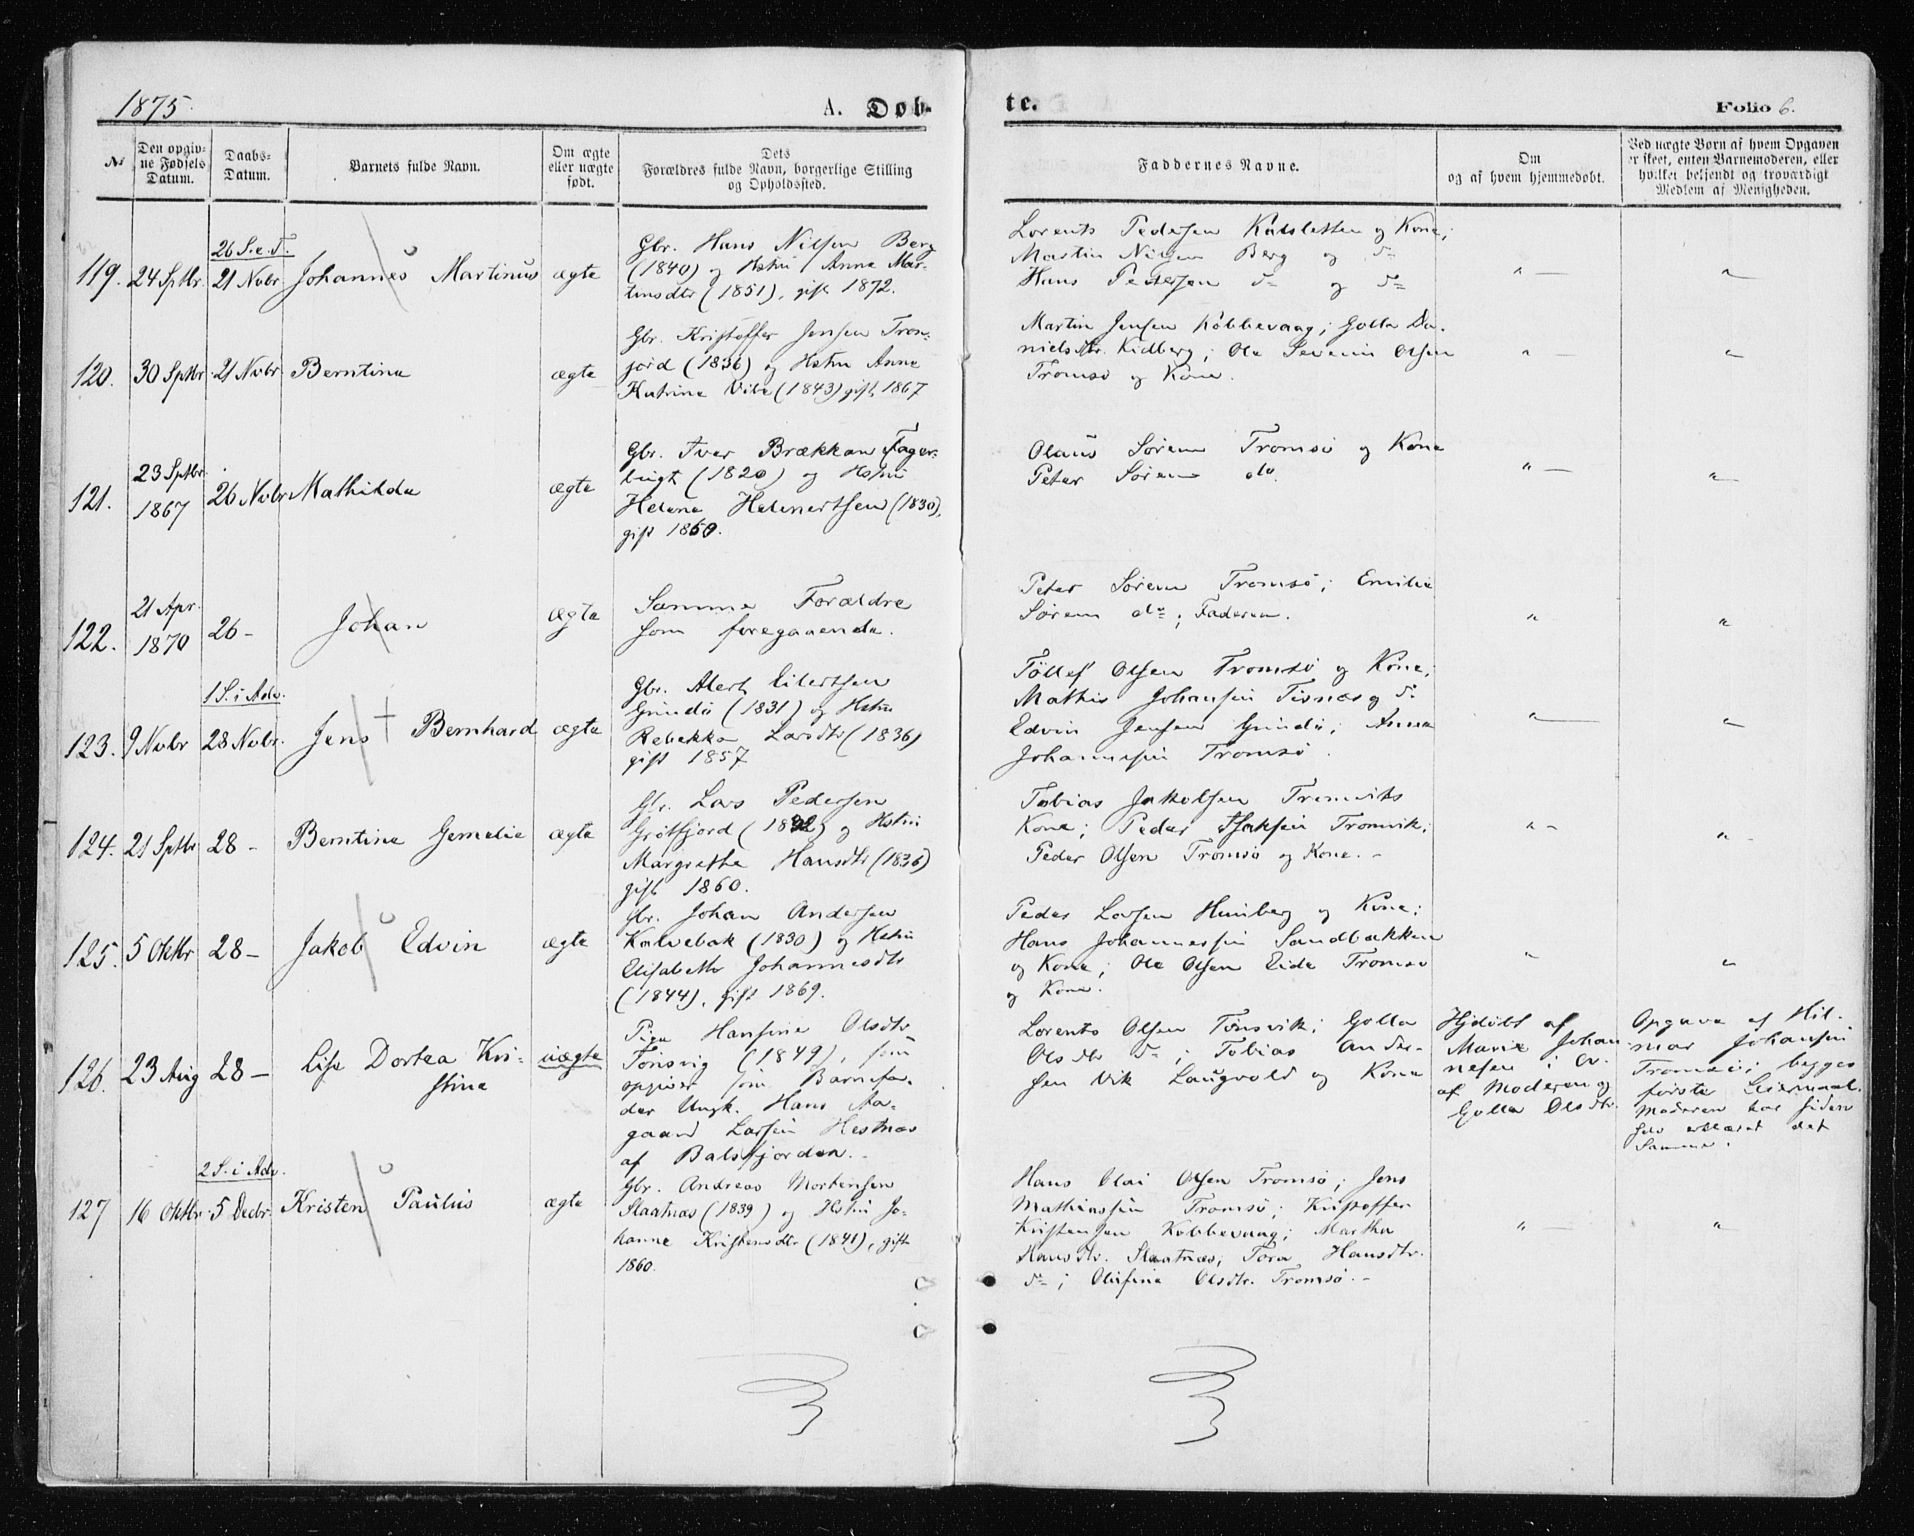 1875.
A. Døb-
te.
Folio 6.
№
Den opgiv-
ne Fødsels
Datum.
Daabs-
Datum.
Barnets fulde Navn.
Om ægte
eller uægte
født.
Dets
Forældres fulde Navn, borgerlige Stilling
og Opholdssted.
Faddernes Navne.
Om
og af hvem hjemmedøbt.
Ved uægte Børn af hvem Opgaven
er skeet, enten Barnemoderen, eller
hvilket bekjendt og troværdigt
Medlem af Menigheden.
119.
24 Sptbr.
26 S. e. T.
21 Novbr
Johannes Martinus
ægte
Gbr. Hans Nilsen Berg
(1840) og Hstru Anna Mar-
tinsdtr (1851), gift 1872.
Lorents Pedersen Kalsletten og Kone;
Martin Nilsen Berg og do
Hans Pedersen do og do
" —
" —
120.
30 Sptbr
21 Novbr
Berntina
ægte
Gbr. Kristoffer Jensen Tron-
jord (1836) og Hstru Anne
Katrine Vibe (1843) gift 1867
Martin Jensen Kobbevaag; Golla Da-
nielsdtr. Kidberg; Ole Severin Olsen
Tromsø og Kone.
" —
" —
121.
23 Sptbr.
1867
26 Novbr
Mathilda
ægte
Gbr. Iver Brækkan Fager-
bugt (1820) og Hstru
Helene Helmertsen (1830),
gift 1860.
Olaus Sørem Tromsø og Kone
Peter Sørem do.
" —
" —
122.
21 Apr.
1870
26 –
Johan
ægte
Samme Forældre
som foregaaende.
Peter Sørem Tromsø; Emilie
Sørem do; Faderen.
"
"
123.
9 Novbr
1 S. i Adv.
28 Novbr.
Jens † Bernhard
ægte
Gbr. Alert Eilertsen
Grindø (1831) og Hstru
Rebekka Larsdtr (1836)
gift 1857
Tollef Olsen Tromsø og Kone;
Mathis Johansen Tisnæs og do
Edvin Jensen Grindø; Anna
Johannesen Tromsø.
" —
" —
124.
21 Sptbr
28 –
Berntine Gemelie
ægte
Gbr. Lars Pedersen
Grøtfjord (1832) og Hstru
Margrethe Hansdtr (1836)
gift 1860.
Tobias Jakobsen Tromviks
Kone; Peder Isaksen Tromvik;
Peder Olsen Tromsø og Kone. –
" –
" –
125.
5 Oktbr
28 –
Jakob Edvin
ægte
Gbr. Johan Andersen
Kalvebak (1830) og Hstru
Elisabeth Johannesdtr
(1844), gift 1869.
Peder Larsen Hunberg og Kone;
Hans Johannessen Sandbakken
og Kone; Ole Olsen Eide Tromsø
og Kone.
"
"
126.
23 Aug
28 –
Lise Dortea Kri-
stine
uægte
Pige Hansine Olsdtr
Tønsvig (1849), som
opgiver som Barnefa-
der Ungk. Hans Aa-
gaard Larsen Hestnæs
af Balsfjorden. –
Lorents Olsen Tønsvik; Golla
Olsdtr do; Tobias Ander-
sen Vik Laugvold og Kone
Hjdøbt af
Marie Johan-
nesen i Ov.
af Moderen og
Golla Olsdtr.
Opgave af Hil-
mar Johansen
Tromsø; begges
første Leiermaal.
Moderen har siden
selv erklæret det
Samme.
127
16 Oktbr
2 S. i Adv.
5 Decbr.
Kristen Paulus
ægte
Gbr. Andreas Mortensen
Slaatnæs (1839) og Hstru Jo-
hanne Kristensdtr (1841), gift
1860.
Hans Olai Olsen Tromsø; Jens
Mathiassen Tromsø; Kristoffer
Kristensen Kobbevaag; Martha
Hansdtr. Slaatnæs; Tora Hansdtr.
do; Olufine Olsdtr. Tromsø. –
" —
" —